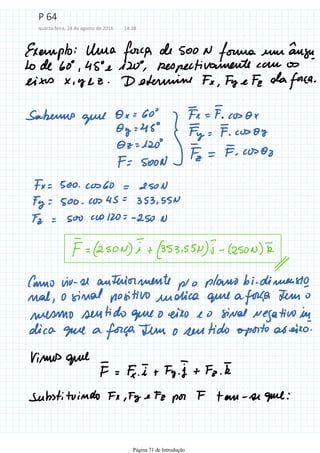 P 64
quarta-feira, 24 de agosto de 2016 14:38
Exemplo: Uma força de 500 N forma um ângu
lo de 60°, 45° e 120°, respectivamente com os
eixos x, y e z. Determine Fx, Fy e Fz da força.
Sabemos que θx = 60° Fx = F. cos θx
θy = 45° Fy = F. cos θy
θz = 120° Fz = F. cos θz
F = 500N
Fx = 500. cos 60 = 250N
Fy = 500. cos 45 = 353,55N
Fz = 500 cos 120 = -250 N
F = (250N) i + (353,55N) j - (250N) k
Como viu-se anteriormente p/ o plano bi-dimensio
nal, o sinal positivo indica que a força tem o
mesmo sentido que o eixo e o sinal negativo in
dica que a força tem o sentido oposto ao eixo.
Vimos que
F = Fx.i + Fy.j + Fz.k
Substituindo Fx, Fy e Fz por F tem-se que:
Página 71 de Introdução